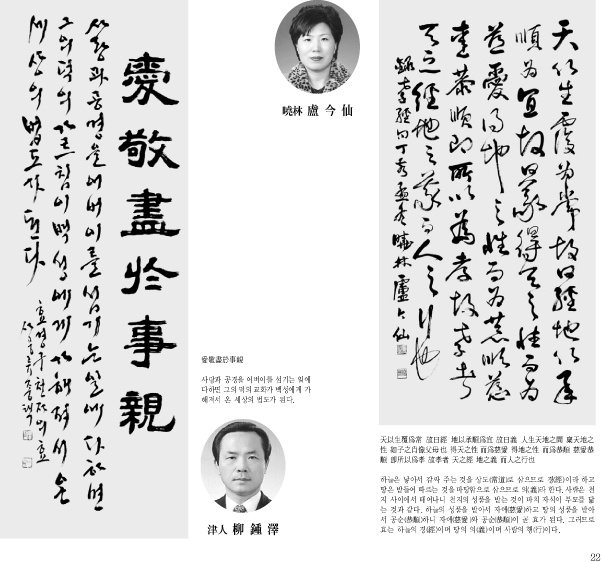 愛敬盡於事親
사랑과 공경을 어버이를 섬기는 일에 다하면
그의 덕의 가르침이 백성에게 가해져서 온
세상의 법도가 된다
효경구 천자의 효
曉林 盧今仙
天以生覆為常故曰經地以承
順為宜故曰義得天之性而為
慈愛得地之性而為恭順慈
愛恭順即所以為孝故孝者
天之經地之義而人之行也
錄孝經句丁亥孟冬曉林盧今仙
愛敬盡於事親
사랑과 공경을 어버이를 섬기는 일에
다하면 그의 덕의 교화가 백성에게 가
해져서 온 세상의 법도가 된다.
津人 柳鍾澤
天以生覆爲常 故曰經 地以承順爲宜 故曰義 人生天地之間 稟天地之
性 如子之肖像父母也 得天之性 而爲慈愛 得地之性 而爲恭順 慈愛恭
順 卽所以爲孝 故孝者 天之經 地之義 而人之行也
하늘은 낳아서 감싸 주는 것을 상도(常道)로 삼으므로 경(經)이라 하고
땅은 받들어 따르는 것을 마땅함으로 삼으므로 의(義)라 한다. 사람은 천
지 사이에서 태어나니 천지의 성품을 받는 것이 마치 자식이 부모를 닮
는 것과 같다. 하늘의 성품을 받아서 자애(慈愛)하고 땅의 성품을 받아
서 공순(恭順)하니 자애(慈愛)와 공순(恭順)이 곧 효가 된다. 그러므로
효는 하늘의 경(經)이며 땅의 의(義)이며 사람의 행(行)이다.
22